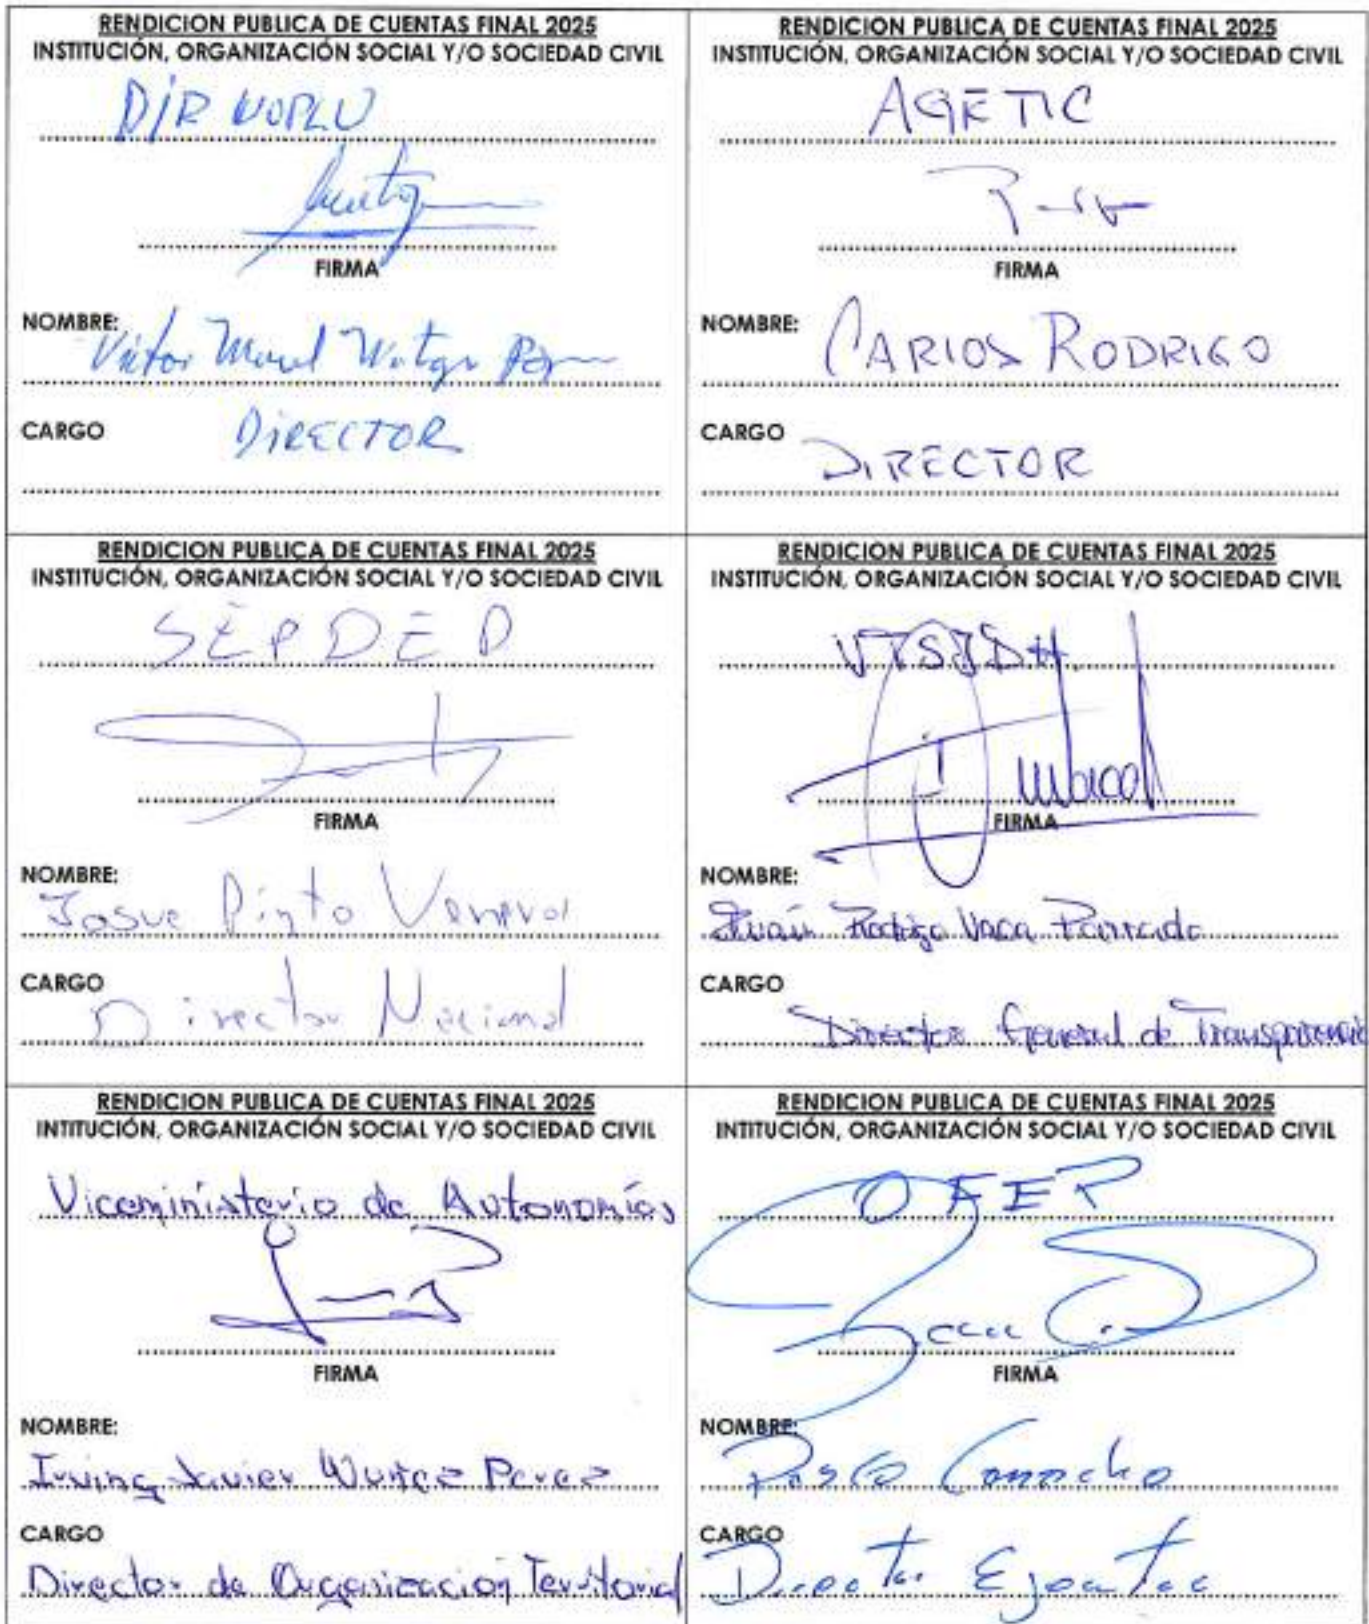 RENDICION PUBLICA DE CUENTAS FINAL 2025
INSTITUCIÓN, ORGANIZACIÓN SOCIAL Y/O SOCIEDAD CIVIL
DIR
FIRMA
NOMBRE:
Victor
CARGO
DIRECTOR
RENDICION PUBLICA DE CUENTAS FINAL 2025
INSTITUCIÓN, ORGANIZACIÓN SOCIAL Y/O SOCIEDAD CIVIL
AGETIC
FIRMA
NOMBRE:
CARLOS RODRIGO
CARGO
DIRECTOR
RENDICION PUBLICA DE CUENTAS FINAL 2025
INSTITUCIÓN, ORGANIZACIÓN SOCIAL Y/O SOCIEDAD CIVIL
SEPDEP
FIRMA
NOMBRE:
Josue Pinto
CARGO
Director Nacional
RENDICION PUBLICA DE CUENTAS FINAL 2025
INSTITUCIÓN, ORGANIZACIÓN SOCIAL Y/O SOCIEDAD CIVIL
FIRMA
NOMBRE:
Rodrigo Vaca Parrado
CARGO
Director General de Transparencia
RENDICION PUBLICA DE CUENTAS FINAL 2025
INTITUCIÓN, ORGANIZACIÓN SOCIAL Y/O SOCIEDAD CIVIL
Viceministerio de Autonomías
FIRMA
NOMBRE:
Irving Javier Perez
CARGO
Director de Organización Territorial
RENDICION PUBLICA DE CUENTAS FINAL 2025
INTITUCIÓN, ORGANIZACIÓN SOCIAL Y/O SOCIEDAD CIVIL
OFEP
FIRMA
NOMBRE:
Camacho
CARGO
Director Ejecutivo